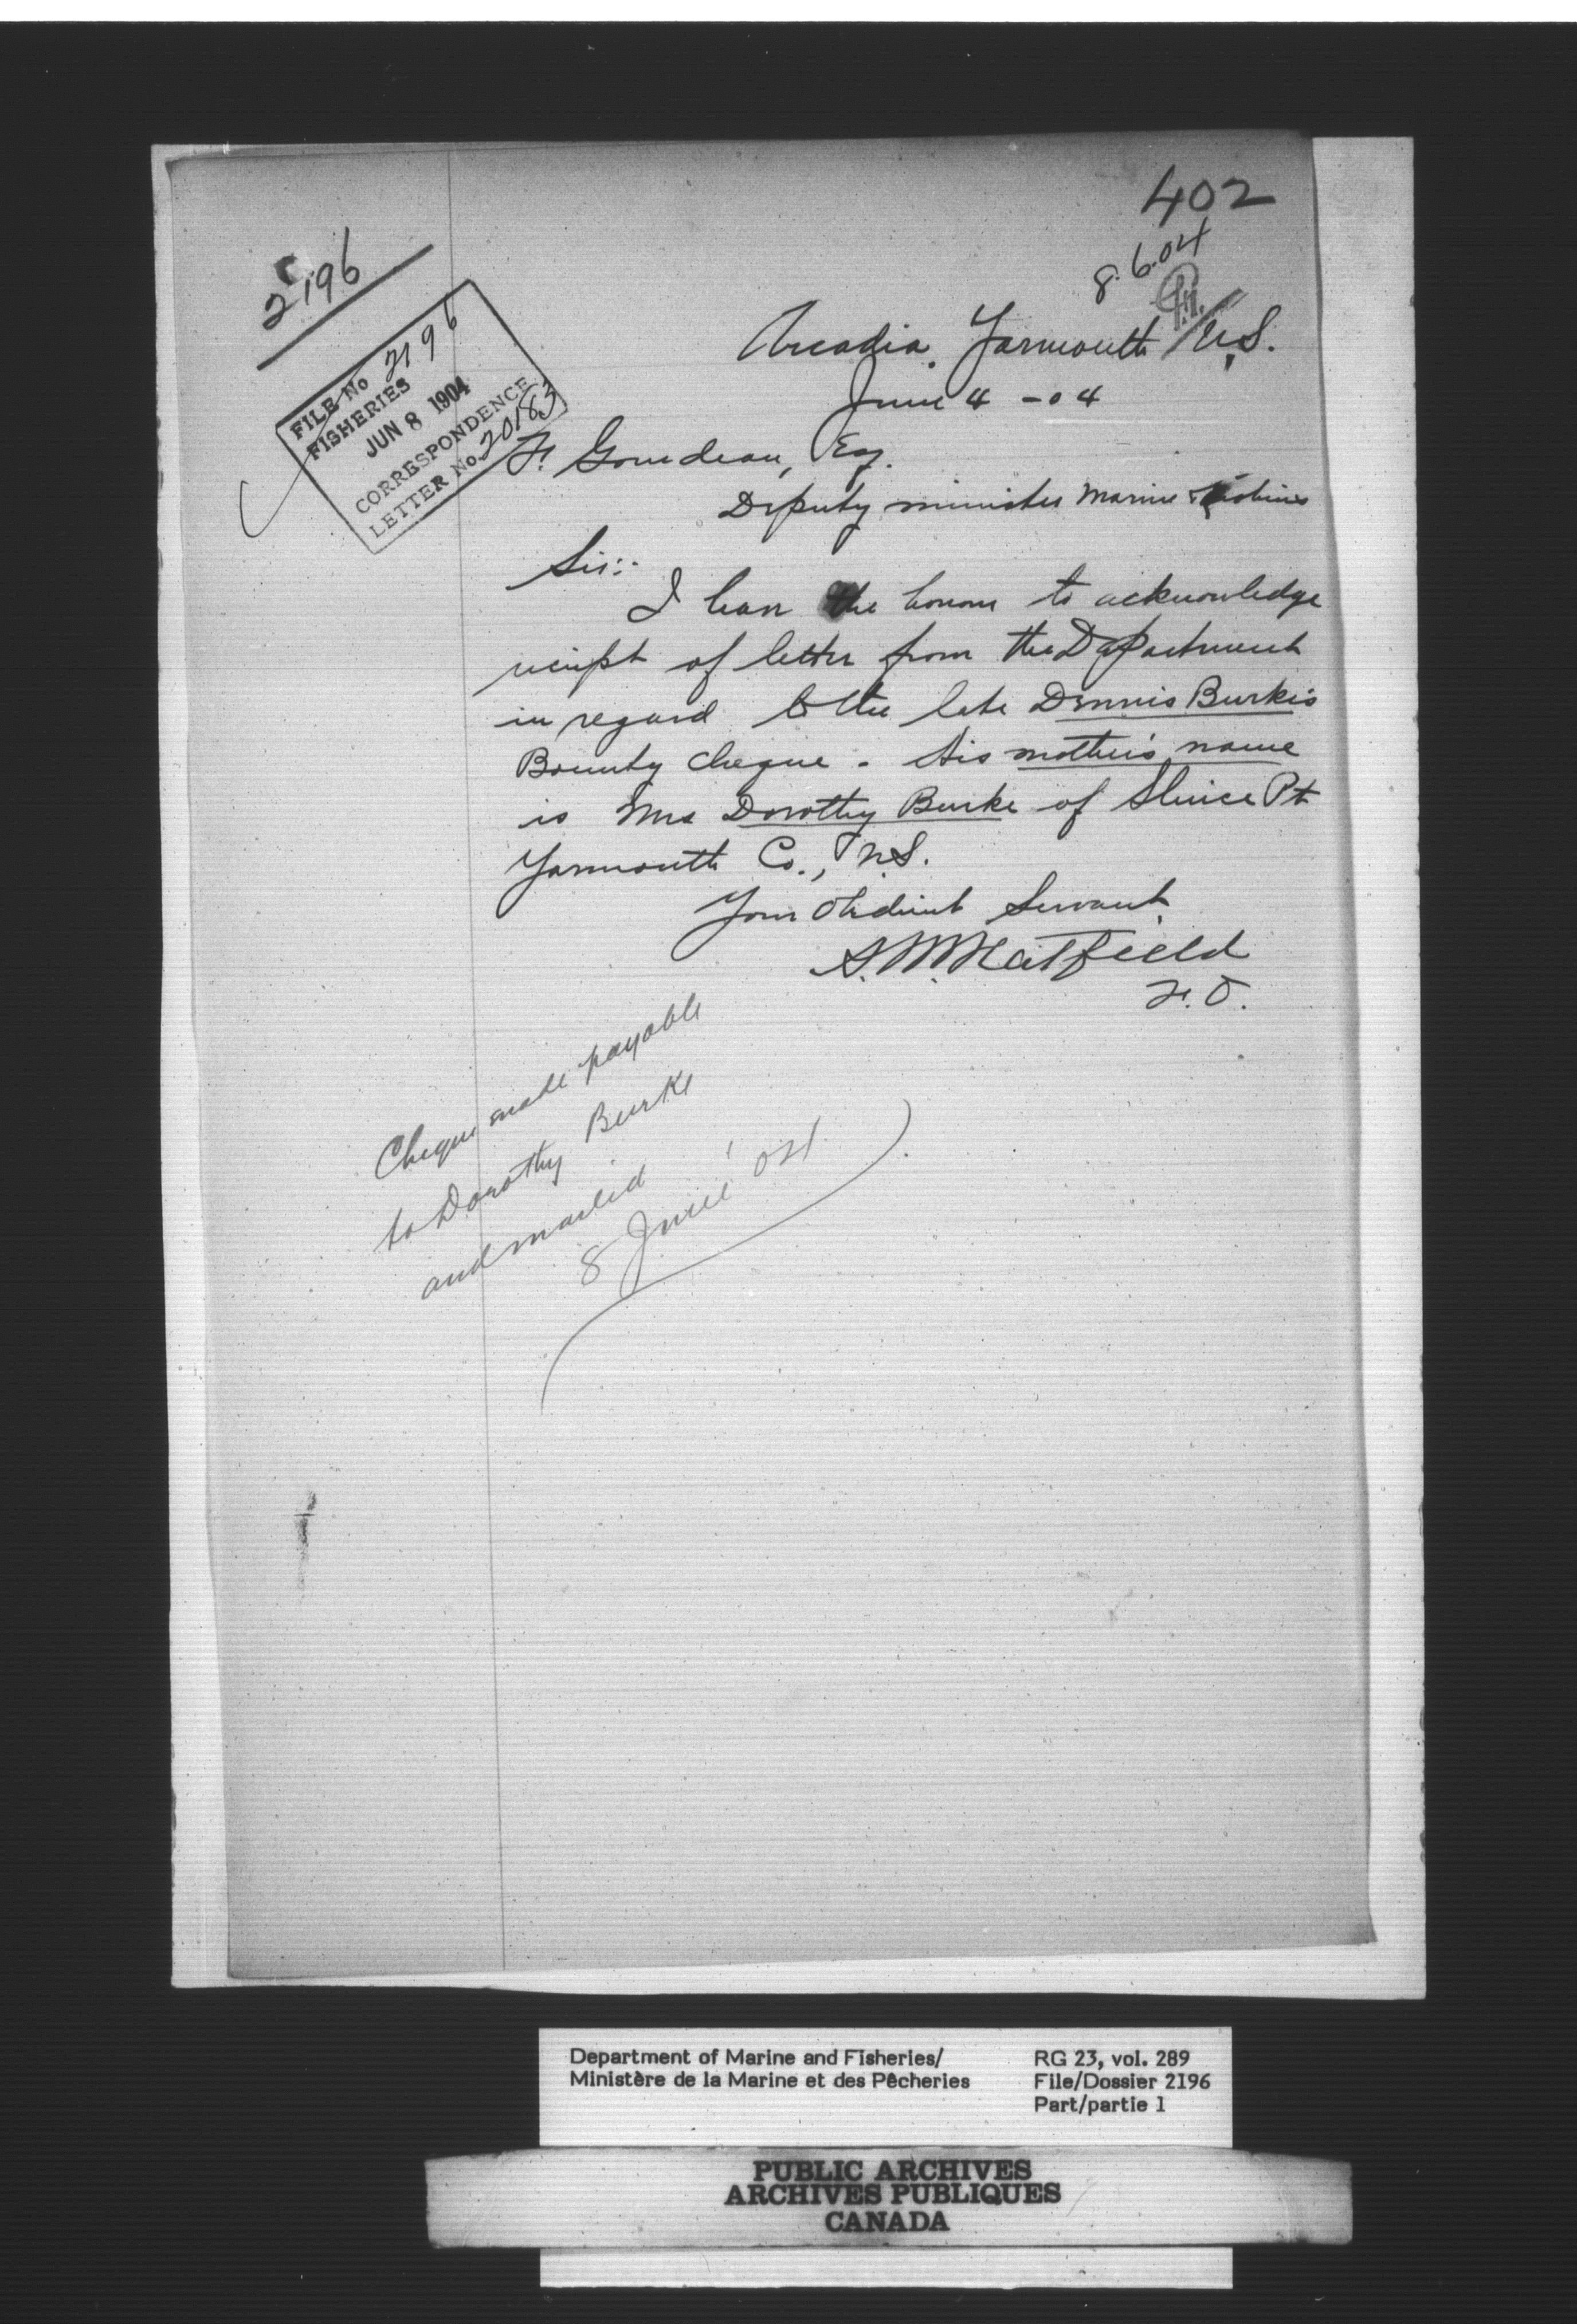 402
8.6.04
2196
FILE No 2196
FISHERIES
JUN 8 1904
CORRESPONDENCE
LETTER No. 20183
Arcadia, Yarmouth N.S.
June 4 - 04
F. Gourdeau, Esq.
Deputy minister Marine & Fisheries
Sir:-
I have the honour to acknowledge
receipt of letter from the Department
in regard to the late Dennis Burke's
Bounty cheque. His mother's name
is Mrs Dorothy Burke of Sluice Pt
Yarmouth Co., N.S.
Your Obedient Servant
Hatfield
F.O.
Cheque made payable
to Dorothy Burke
and mailed
8 June '04
Department of Marine and Fisheries/
Ministère de la Marine et des Pêcheries
RG 23, vol. 289
File/Dossier 2196
Part/partie 1
PUBLIC ARCHIVES
ARCHIVES PUBLIQUES
CANADA